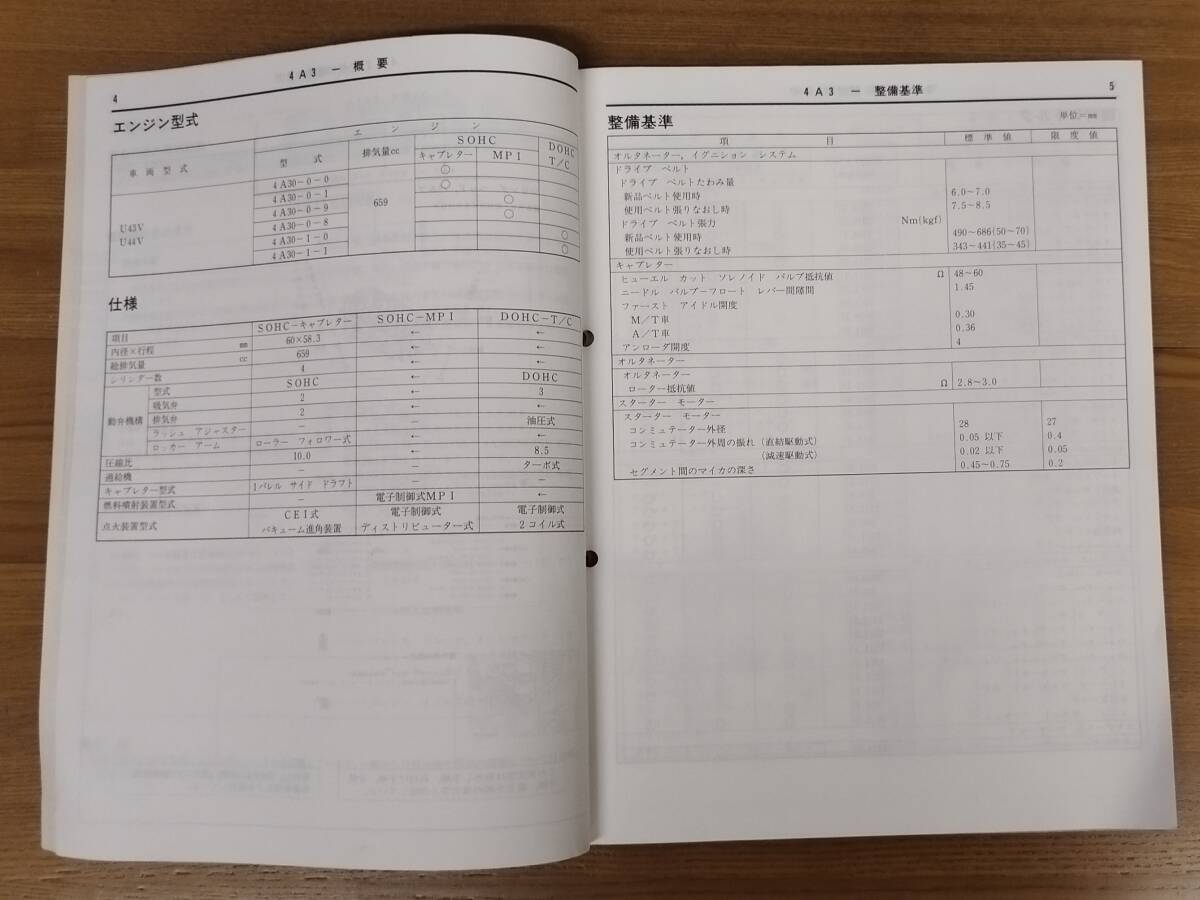 4
4A3 ― 概要
エンジン型式
車両型式 エンジン
型式 排気量cc SOHC DOHC T/C
キャブレター MPI
U43V
U44V
4A30-0-0 659 ○
4A30-0-1 ○
4A30-0-9 ○
4A30-0-8 ○
4A30-1-0 ○
4A30-1-1 ○
仕様
項目 SOHC-キャブレター SOHC-MPI DOHC-T/C
内径×行程 mm 60×58.3 ← ←
総排気量 cc 659 ← ←
シリンダー数 4 ← ←
動弁機構 型式 SOHC ← DOHC
吸気弁 2 ← 3
排気弁 2 ← ←
ラッシュ アジャスター − − 油圧式
ロッカー アーム ローラー フォロワー式 ← ←
圧縮比 10.0 ← 8.5
過給機 − − ターボ式
キャブレター型式 1バレル サイド ドラフト − −
燃料噴射装置型式 − 電子制御式MPI ←
点火装置型式 CEI式 電子制御式 電子制御式
バキューム進角装置 ディストリビューター式 2コイル式
4A3 ― 整備基準
5
整備基準
単位=mm
項目 標準値 限度値
オルタネーター，イグニション システム
ドライブ ベルト
ドライブ ベルトたわみ量
新品ベルト使用時 6.0〜7.0
使用ベルト張りなおし時 7.5〜8.5
ドライブ ベルト張力 Nm{kgf}
新品ベルト使用時 490〜686{50〜70}
使用ベルト張りなおし時 343〜441{35〜45}
キャブレター
ヒューエル カット ソレノイド バルブ抵抗値 Ω 48〜60
ニードル バルブ−フロート レバー間隙間 1.45
ファースト アイドル開度
M/T車 0.30
A/T車 0.36
アンローダ開度 4
オルタネーター
オルタネーター
ローター抵抗値 Ω 2.8〜3.0
スターター モーター
スターター モーター
コンミュテーター外径 28 27
コンミュテーター外周の振れ (直結駆動式) 0.05 以下 0.4
(減速駆動式) 0.02 以下 0.05
セグメント間のマイカの深さ 0.45〜0.75 0.2